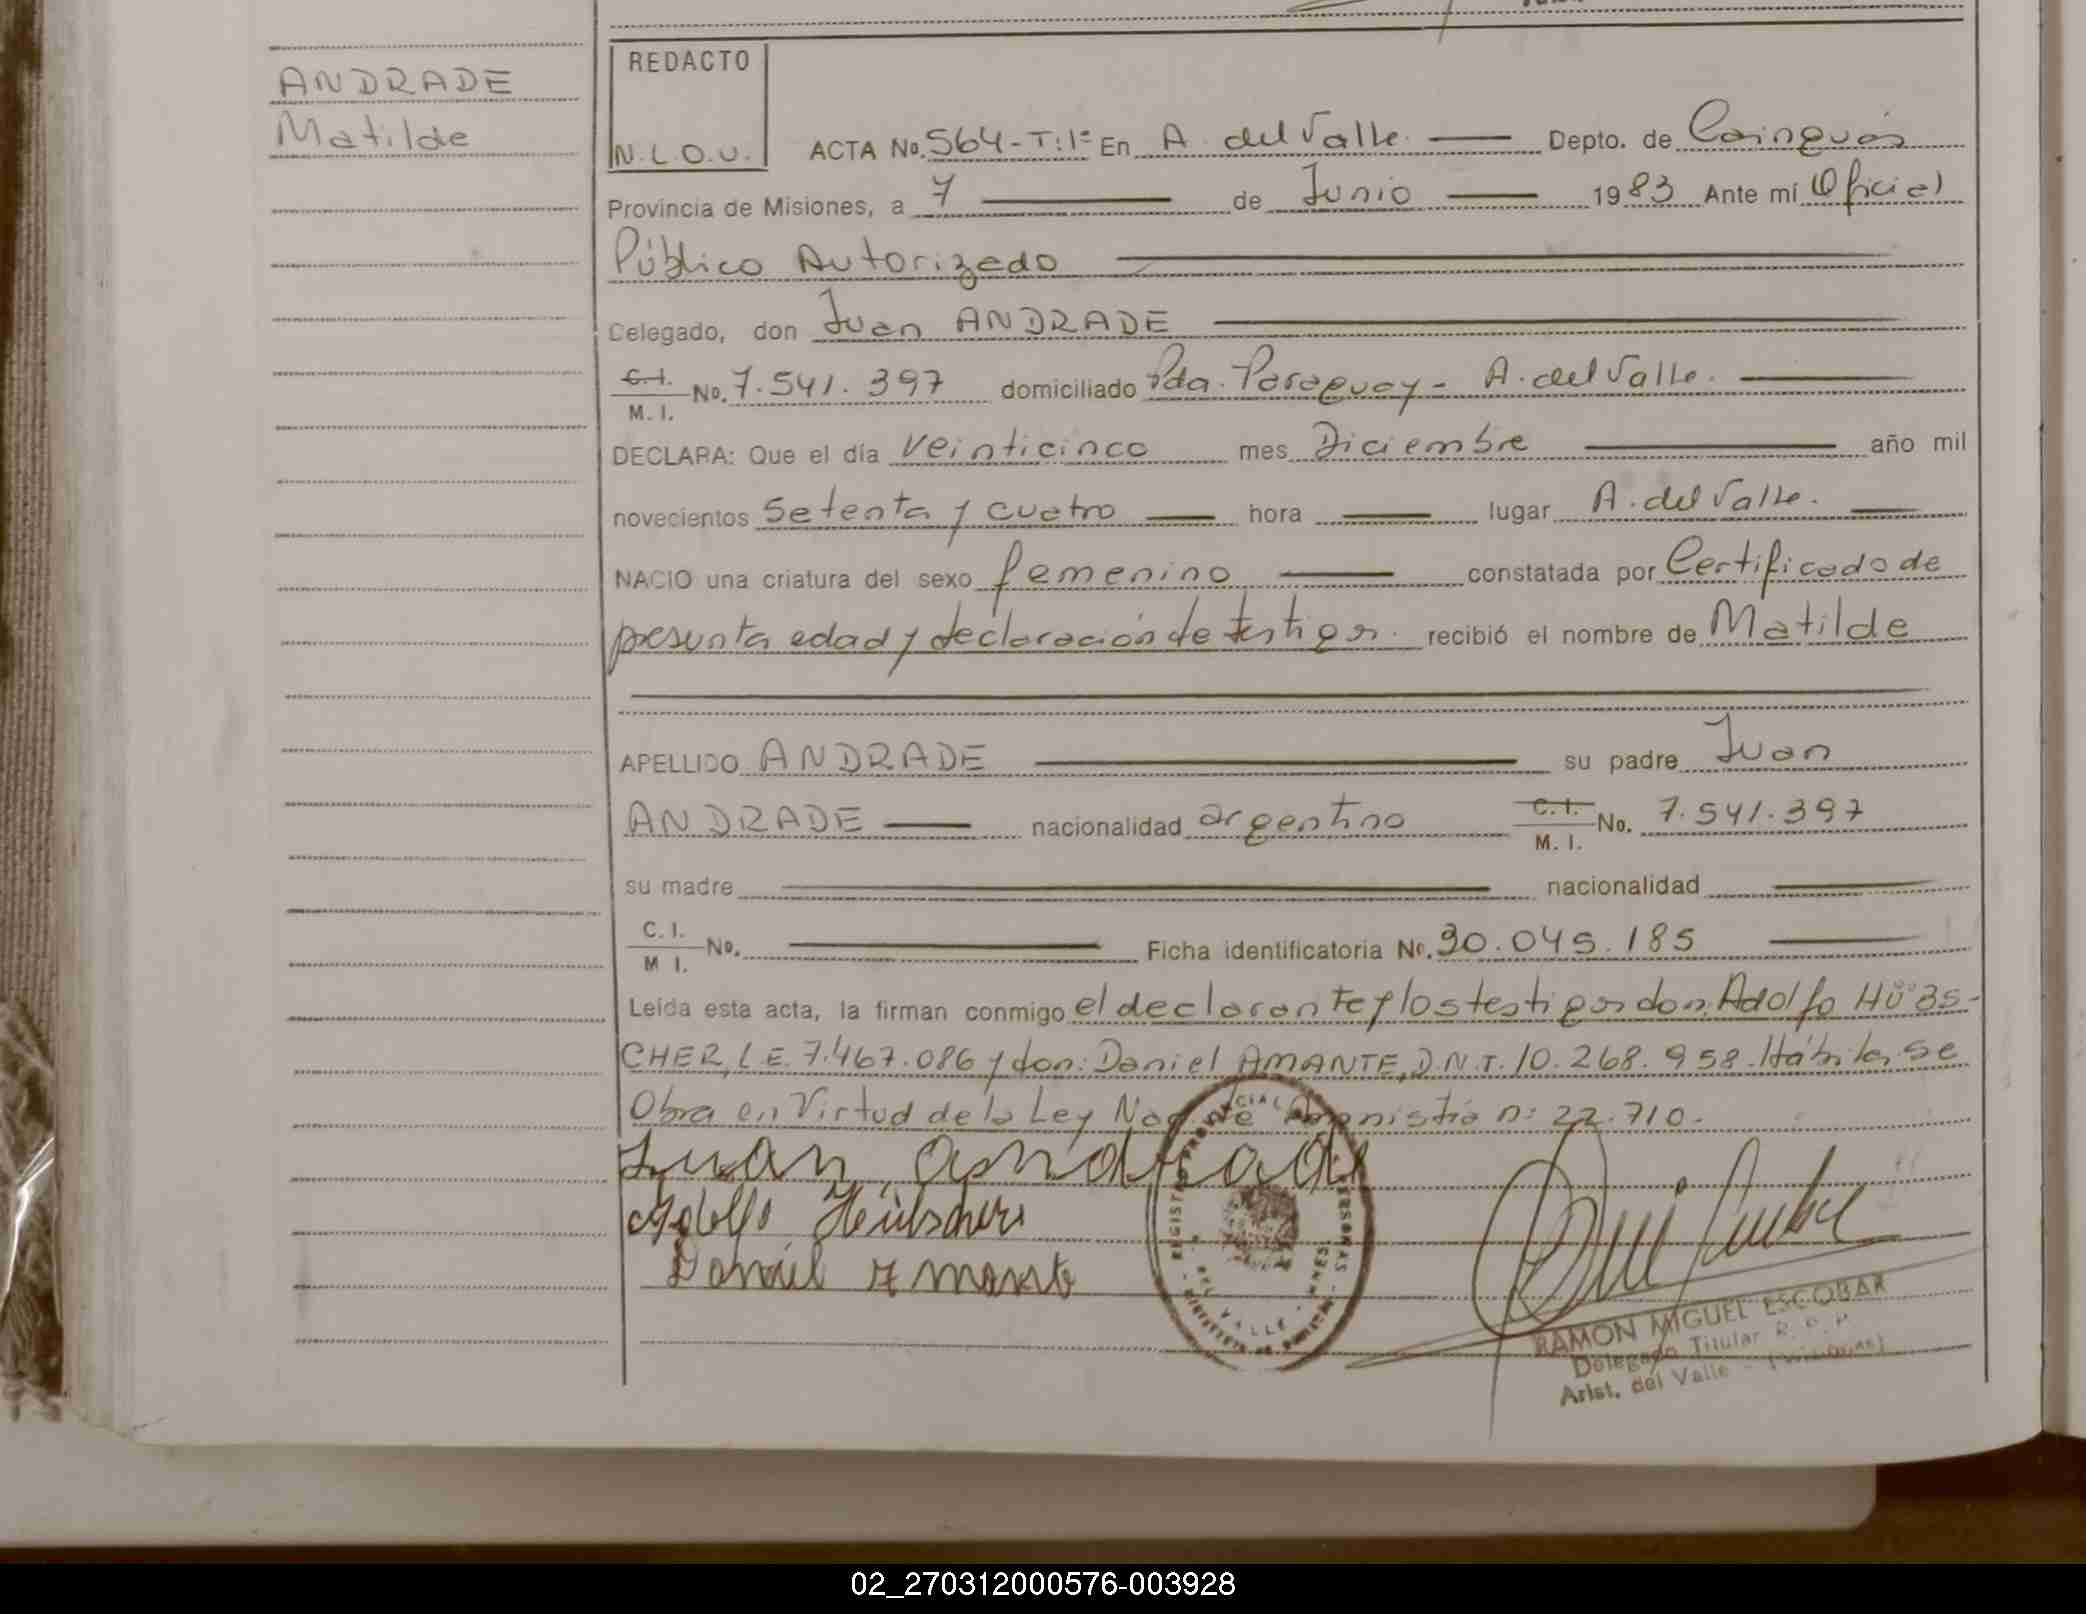 ANDRADE
Matilde
REDACTO
N.L.O.U.
ACTA No. 564-T:1º En A. del Valle. Depto. de Cainguás
Provincia de Misiones, a 7 de Junio 1983 Ante mí Oficial
Público Autorizado
Delegado, don Juan ANDRADE
C.I. M.I. No. 7.541.397 domiciliado Pda. Paraguay - A. del Valle.
DECLARA: Que el día veinticinco mes Diciembre año mil
novecientos setenta y cuatro hora lugar A. del Valle.
NACIO una criatura del sexo femenino constatada por Certificado de
presunta edad y declaración de testigos. recibió el nombre de Matilde
APELLIDO ANDRADE su padre Juan
ANDRADE nacionalidad argentino C.I. M.I. No. 7.541.397
su madre nacionalidad
C.I. M I. No. Ficha identificatoria No. 30.045.185
Leída esta acta, la firman conmigo el declarante y los testigos don: Adolfo HÜBS-
CHER, L.E. 7.467.086 y don: Daniel AMANTE, D.N.I. 10.268.958. Hábiles. se
Obra en Virtud de la Ley Nac. de Amnistía n: 22.710.
Juan andrade
Adolfo Hübscher
Daniel Amante
REGISTRO PROVINCIAL PERSONAS DEL VALLE
RAMON MIGUEL ESCOBAR
Delegado Titular R. P. P.
Arist. del Valle - (Misiones)
02_270312000576-003928